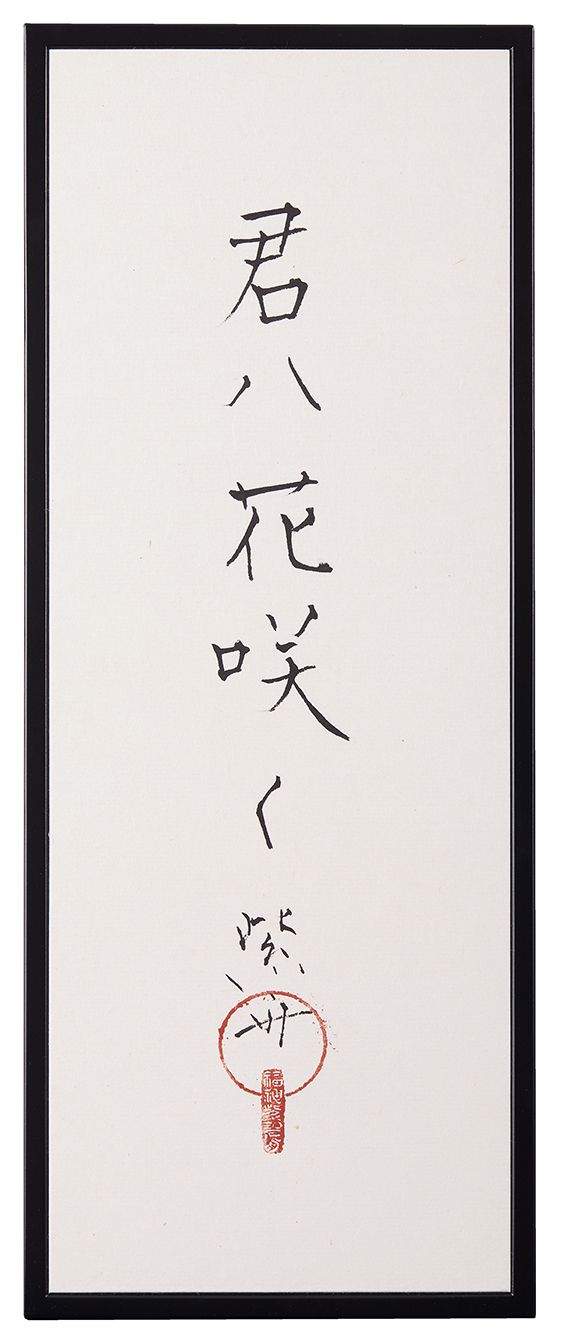 君ハ花咲く
紫